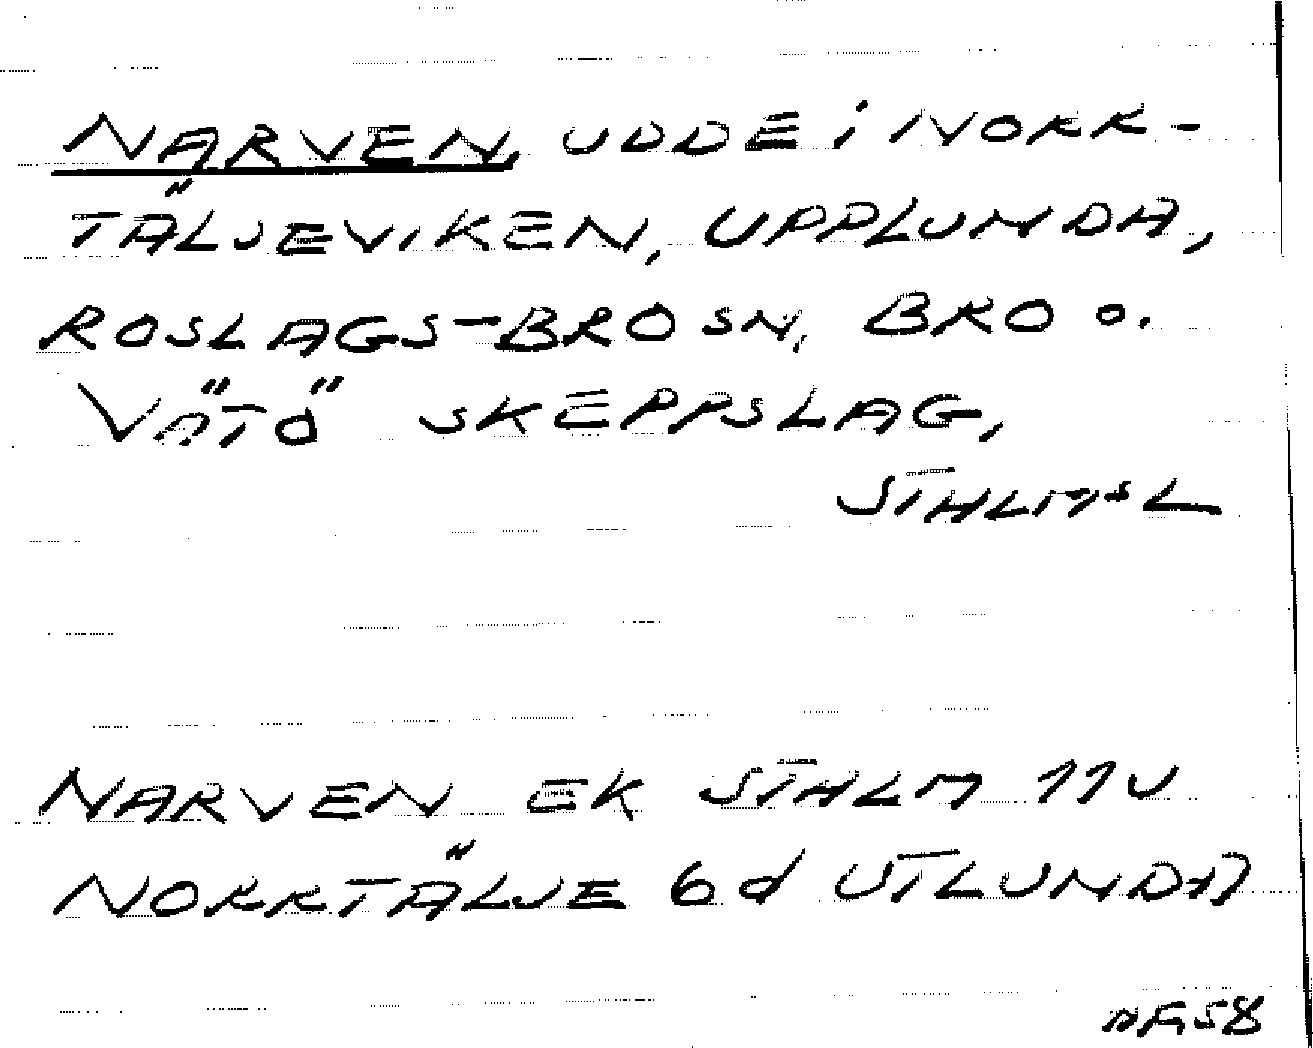 NARVEN, UDDE i NORR-
TÄLJEVIKEN, UPPLUNDA,
ROSLAGS-BRO SN, BRO o.
VÄTÖ SKEPPSLAG,
STHLMS L
NARVEN EK STHLM 11V
NORRTÄLJE 6d UTLUNDA